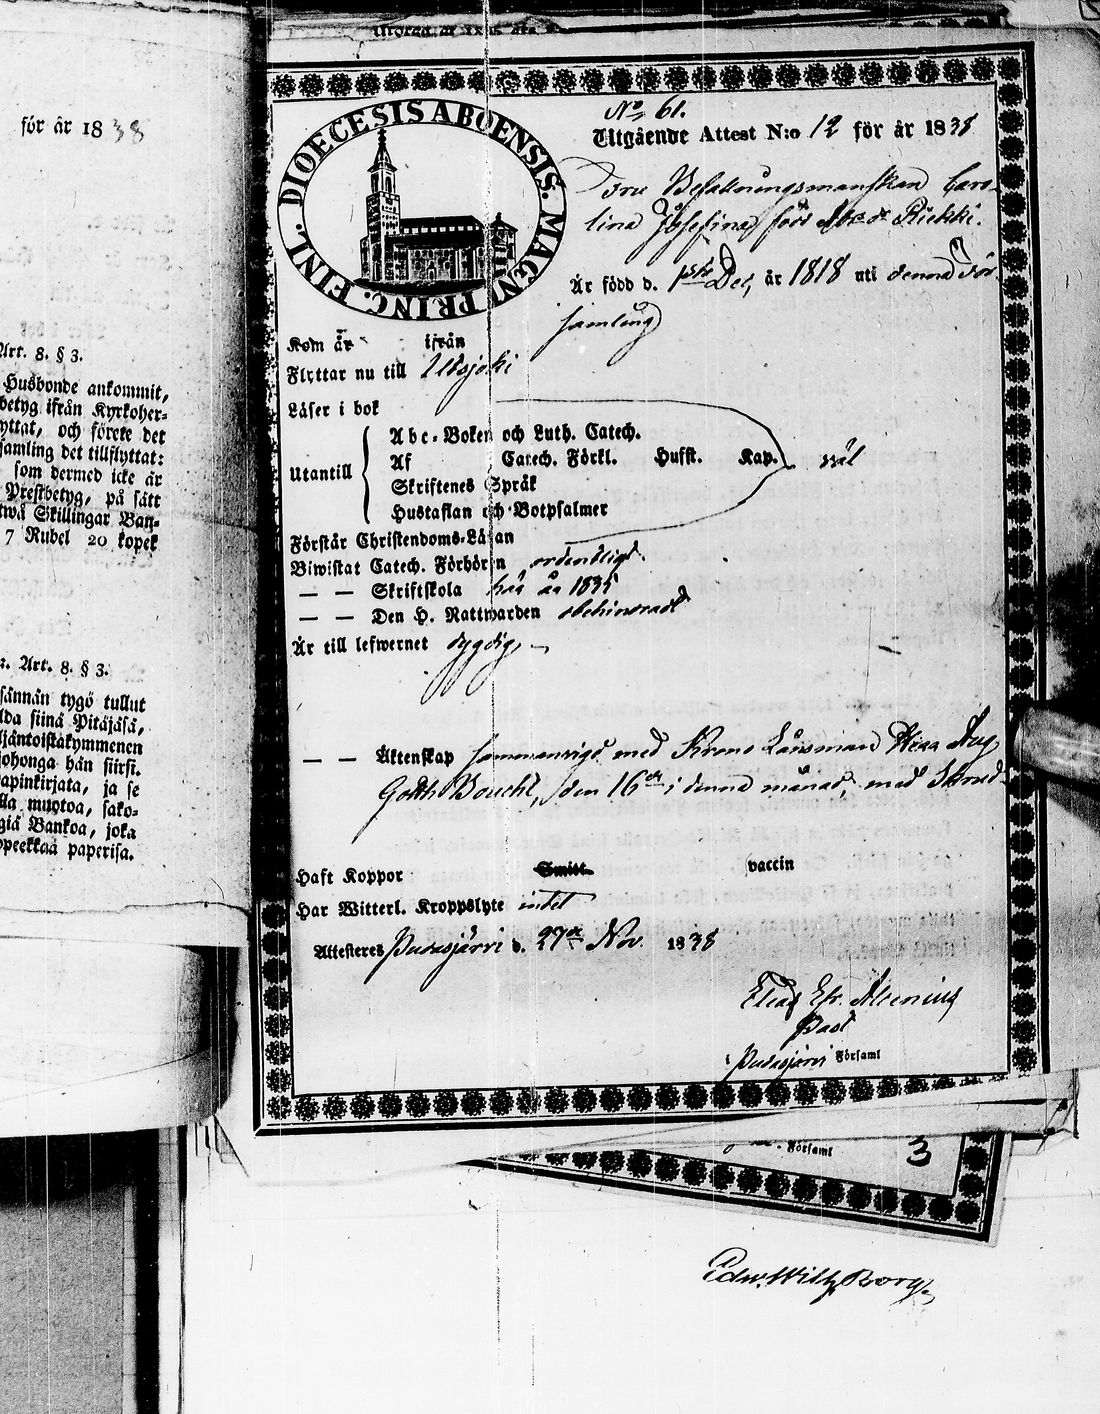 för år 1838
Art. 8. § 3.
Husbonde ankommit,
betyg ifrån Kyrkoher-
yttat, och förete det
samling det tillflyttat:
som dermed icke är
Prestbetyg, på sätt
twå Skillingar Ban-
7 Rubel 20 kopek
Art. 8. § 3.
sännän työ tullut
lda siinä Pitäjäsä,
ljäntoistakymmenen
johonga hän siirsi.
apinkirjata, ja se
lla muotoa, sako-
giä Bankoa, joka
opeekkaa paperisa.
DIOECESIS ABOENSIS. MAGNI PRINC. FINL.
No 61.
Utgående Attest N:o 12 för år 1838
Befallningsmanskan Caro-
lina Josefina född Riekki.
Är född d. 1ste Dec. år 1818 uti denna För
samling
Kom år ifrån
Flyttar nu till Utsjoki
Läser i bok
Utantill
Abc-Boken och Luth. Catech.
Af Catech. Förkl. Husst. Kap. väl
Skriftenes Språk
Hustaflan och Botpsalmer
Förstår Christendoms-Läran
Biwistat Catech. Förhören ordentligt
— — Skriftskola här år 1835
— — Den H. Nattwarden obehindrad
Är till lefwernet dygdig,
— — Äktenskap sammanvigd med Krono Länsman Aug
Gotth Boucht, den 16de i denna månad, med
Haft Koppor Smitt. vaccin
Har Witterl. Kroppslyte intet
Attesteres Pudasjärvi d. 27de Nov. 1838
Elias Efr. Alcenius
Past
i Pudasjärvi Församl
Församl
3
Edw. Wilh. Borg